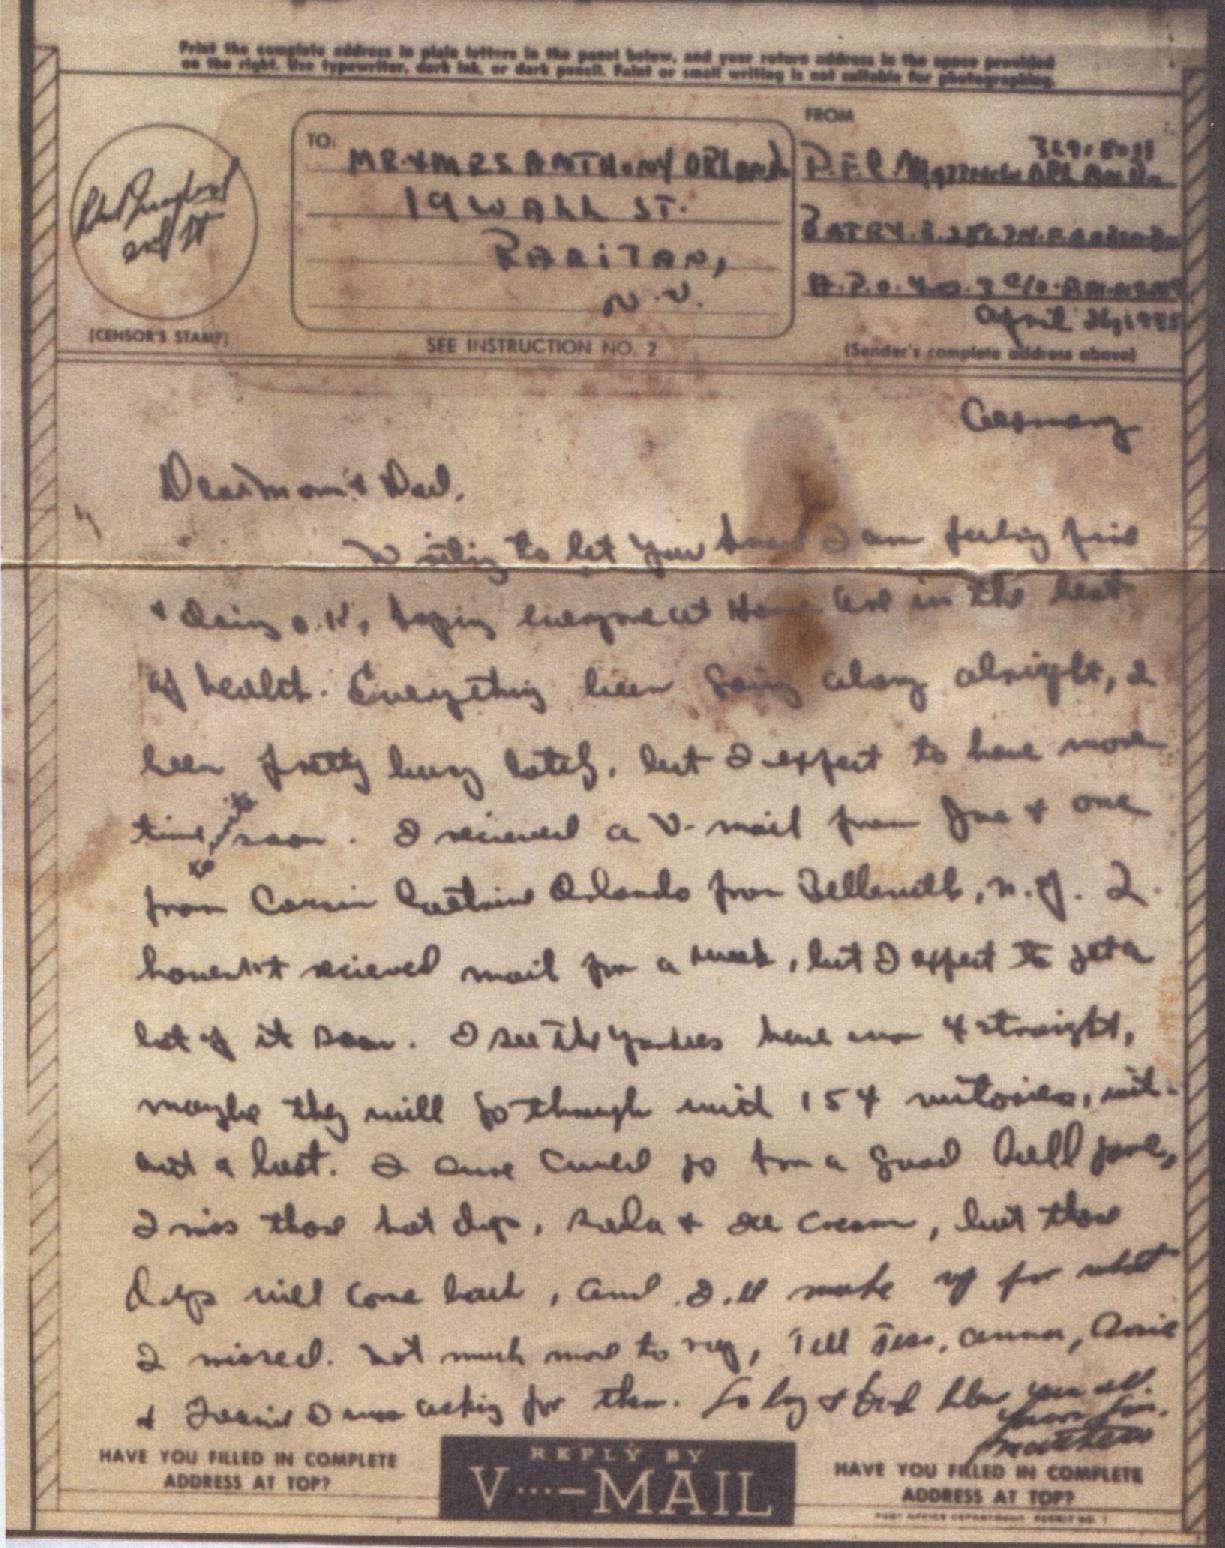 Print the complete address in plain letters in the panel below, and your return address in the space provided
on the right. Use typewriter, dark ink, or dark pencil. Faint or small writing is not suitable for photographing.
FROM
TO:
MR & MRS ANTHONY ORLANDO
19 WALL ST.
RARITAN,
N.J.
P.F.C. Matthew Orlando
A.P.O. No. 3 c/o P.M.
April 24, 1945
(CENSOR'S STAMP)
SEE INSTRUCTION NO. 2
(Sender's complete address above)
Germany
Dear Mom & Dad,
Writing to let you know I am feeling fine
& doing o.k., hoping everyone at Home are in the best
of health. Everything been going along alright, I
been pretty busy lately, but I expect to have more
time to write soon. I recieved a V-mail from Joe & one
from Cousin Orlando from Belleville, N.J. I
haven't recieved mail for a week, but I expect to get a
lot of it soon. I see the Yankees have won 4 straight,
maybe they will go through with 154 victories, with-
out a lost. I sure could go for a good ball game,
I miss those hot dogs, soda & ice cream, but those
days will come back, and I'll make up for what
I missed. Not much more to say, Tell Tess, Anna,
& I was asking for them. So long & God bless you all.
Your Son,
Matthew
HAVE YOU FILLED IN COMPLETE
ADDRESS AT TOP?
REPLY BY
V···—MAIL
HAVE YOU FILLED IN COMPLETE
ADDRESS AT TOP?
POST OFFICE DEPARTMENT PERMIT NO. 1